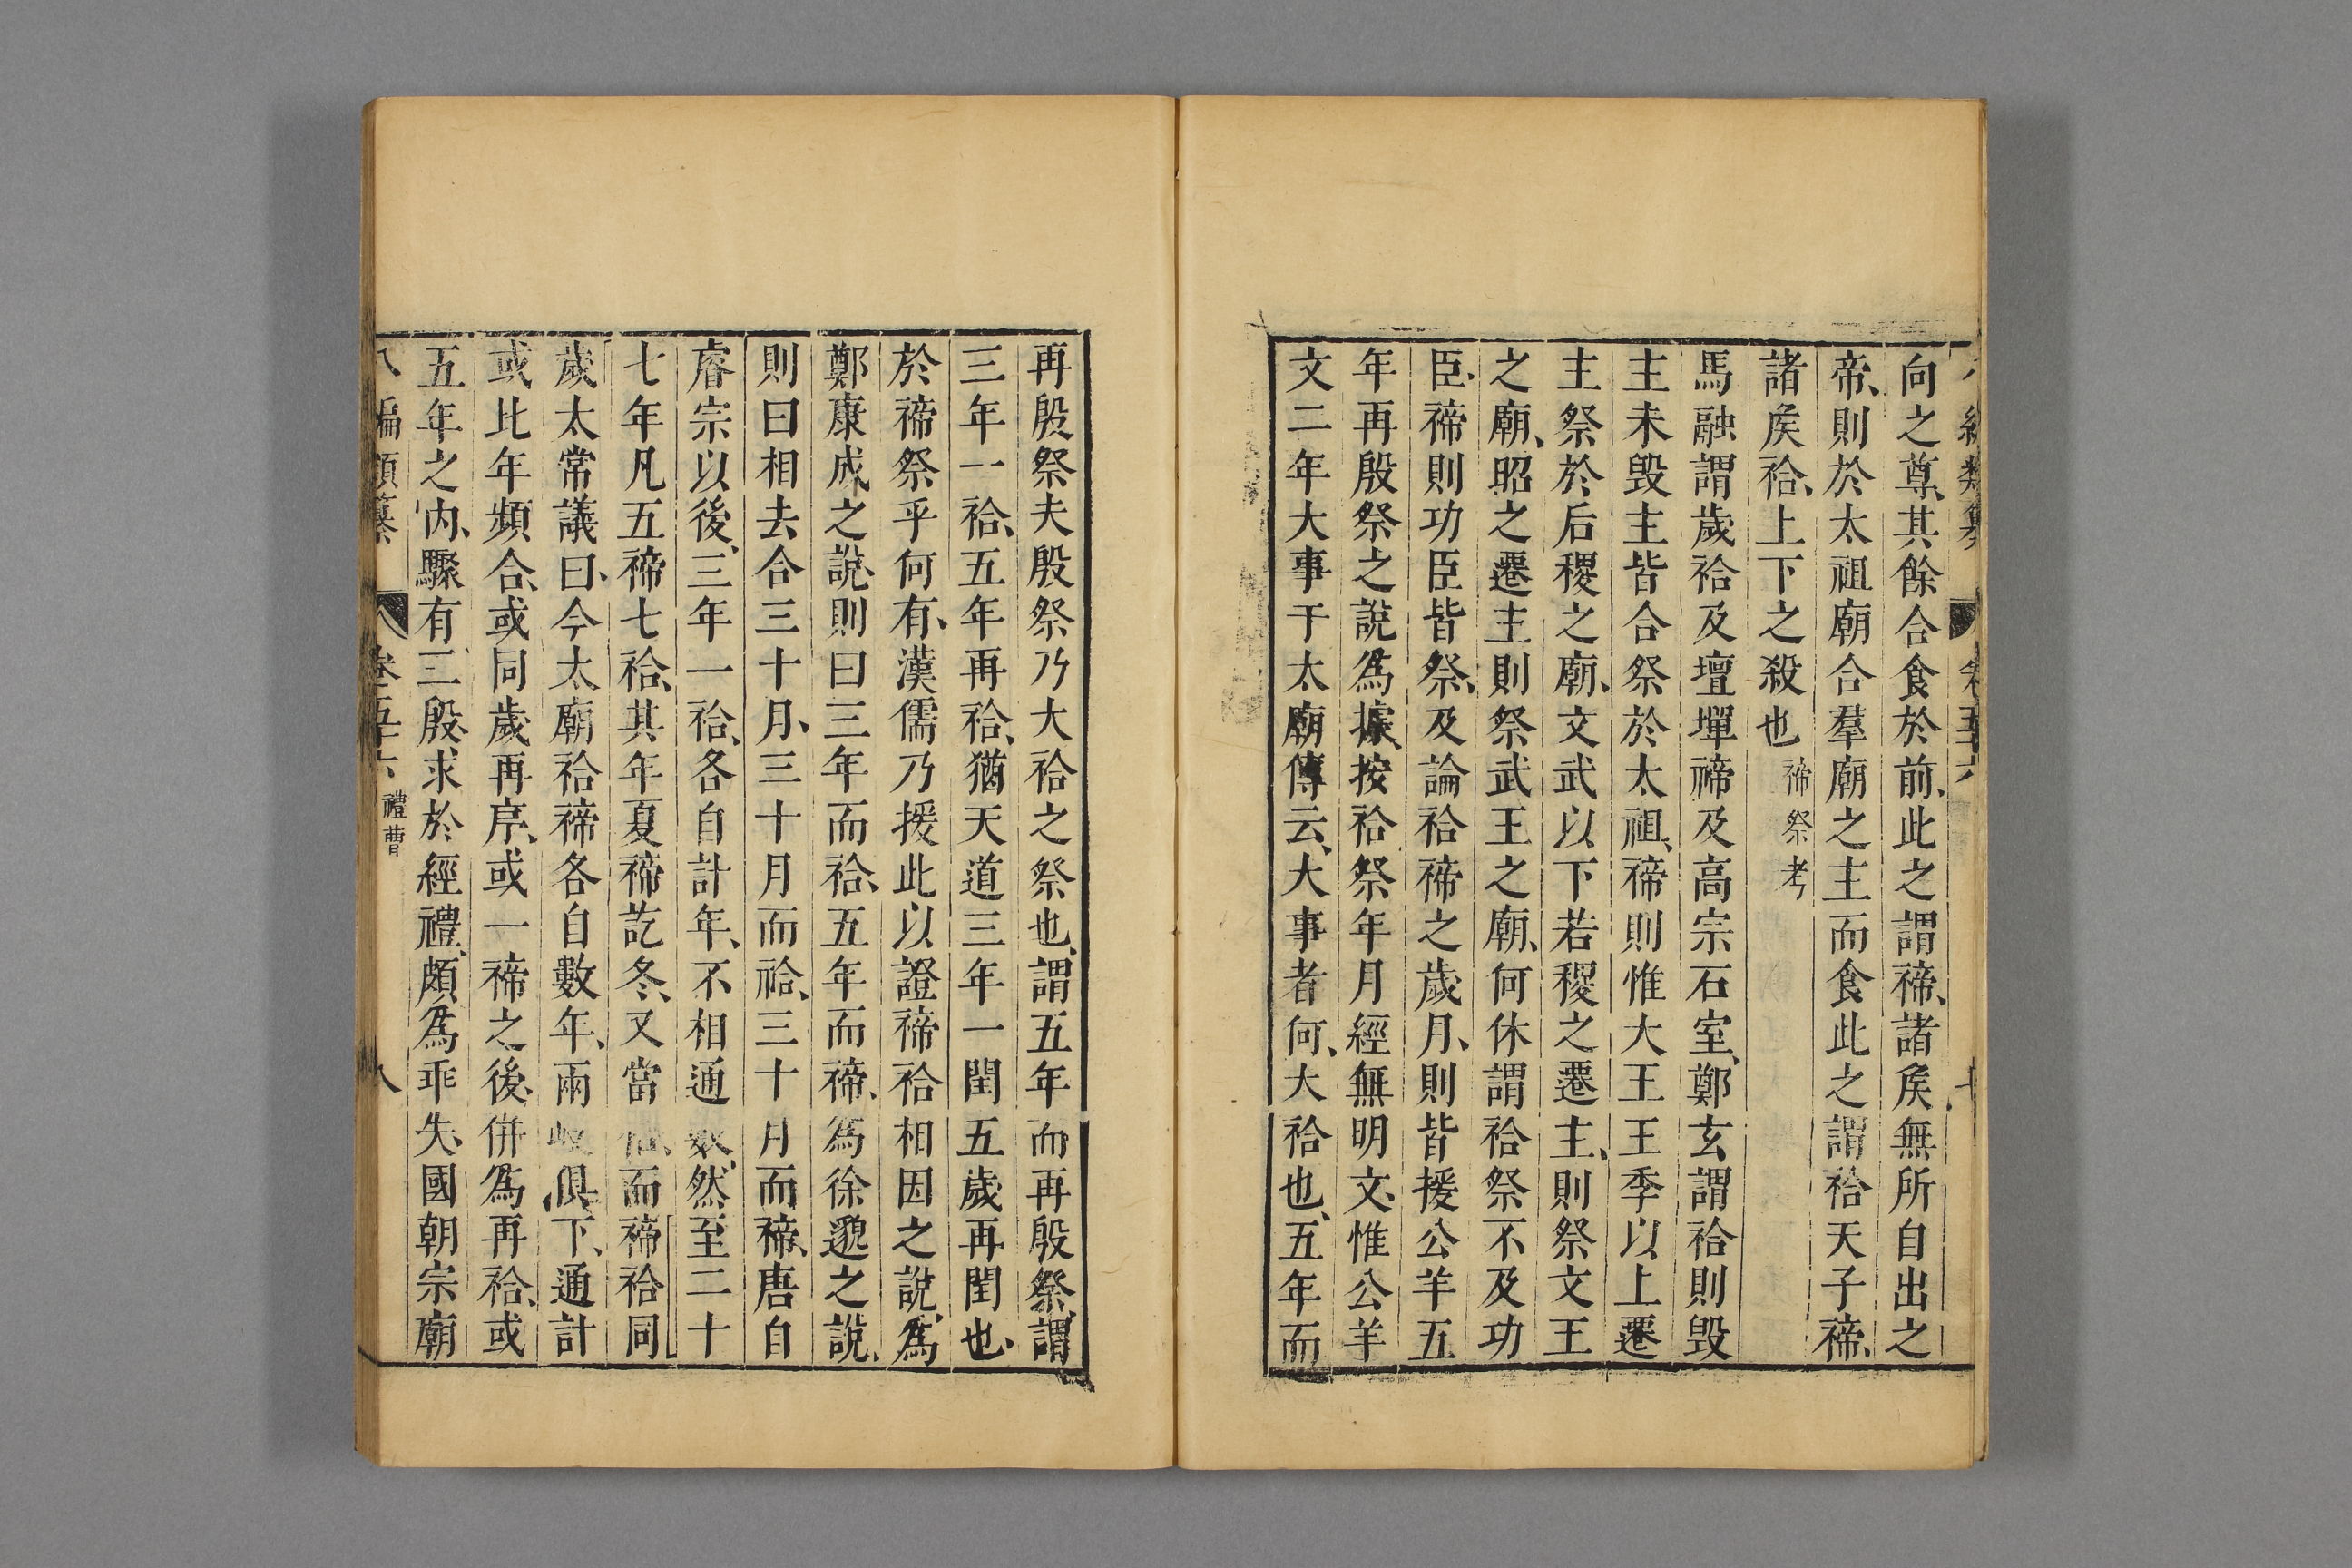 向之尊、其餘合食於前、此之謂禘、諸矦無所自出之
帝、則於太祖廟合羣廟之主而食此之謂祫天子禘、
諸矦祫、上下之殺也 禘祭考
馬融謂歲祫及壇墠禘及高宗石室、鄭玄謂祫則毀
主未毀主皆合祭於太祖、禘則惟大王王季以上遷
主祭於后稷之廟、文武以下若稷之遷主、則祭文王
之廟、昭之遷主則祭武王之廟、何休謂祫祭不及功
臣、禘則功臣皆祭、及論祫禘之歲月、則皆援公羊五
年再殷祭之說爲據、按祫祭年月經無明文、惟公羊
文二年大事于太廟傳云、大事者何、大祫也、五年而
再殷祭夫殷祭乃大祫之祭也、謂五年而再殷祭、謂
三年一祫、五年再祫、猶天道三年一閏五歲再閏也、
於禘祭乎何有、漢儒乃援此以證禘祫相因之說、爲
鄭康成之說、則曰三年而祫、五年而禘、爲徐邈之說、
則曰相去合三十月、三十月而祫、三十月而禘、唐自
睿宗以後、三年一祫、各自計年、不相通數、然至二十
七年凡五禘七祫、其年夏禘訖冬、又當祫、而禘祫同
歲太常議曰、今太廟祫禘各自數年、兩岐俱下、通計
或比年頻合、或同歲再序、或一禘之後、併爲再祫、或
五年之內、驟有三殷、求於經禮、頗爲乖失、國朝宗廟
八編類纂 卷五十六 禮曹 八